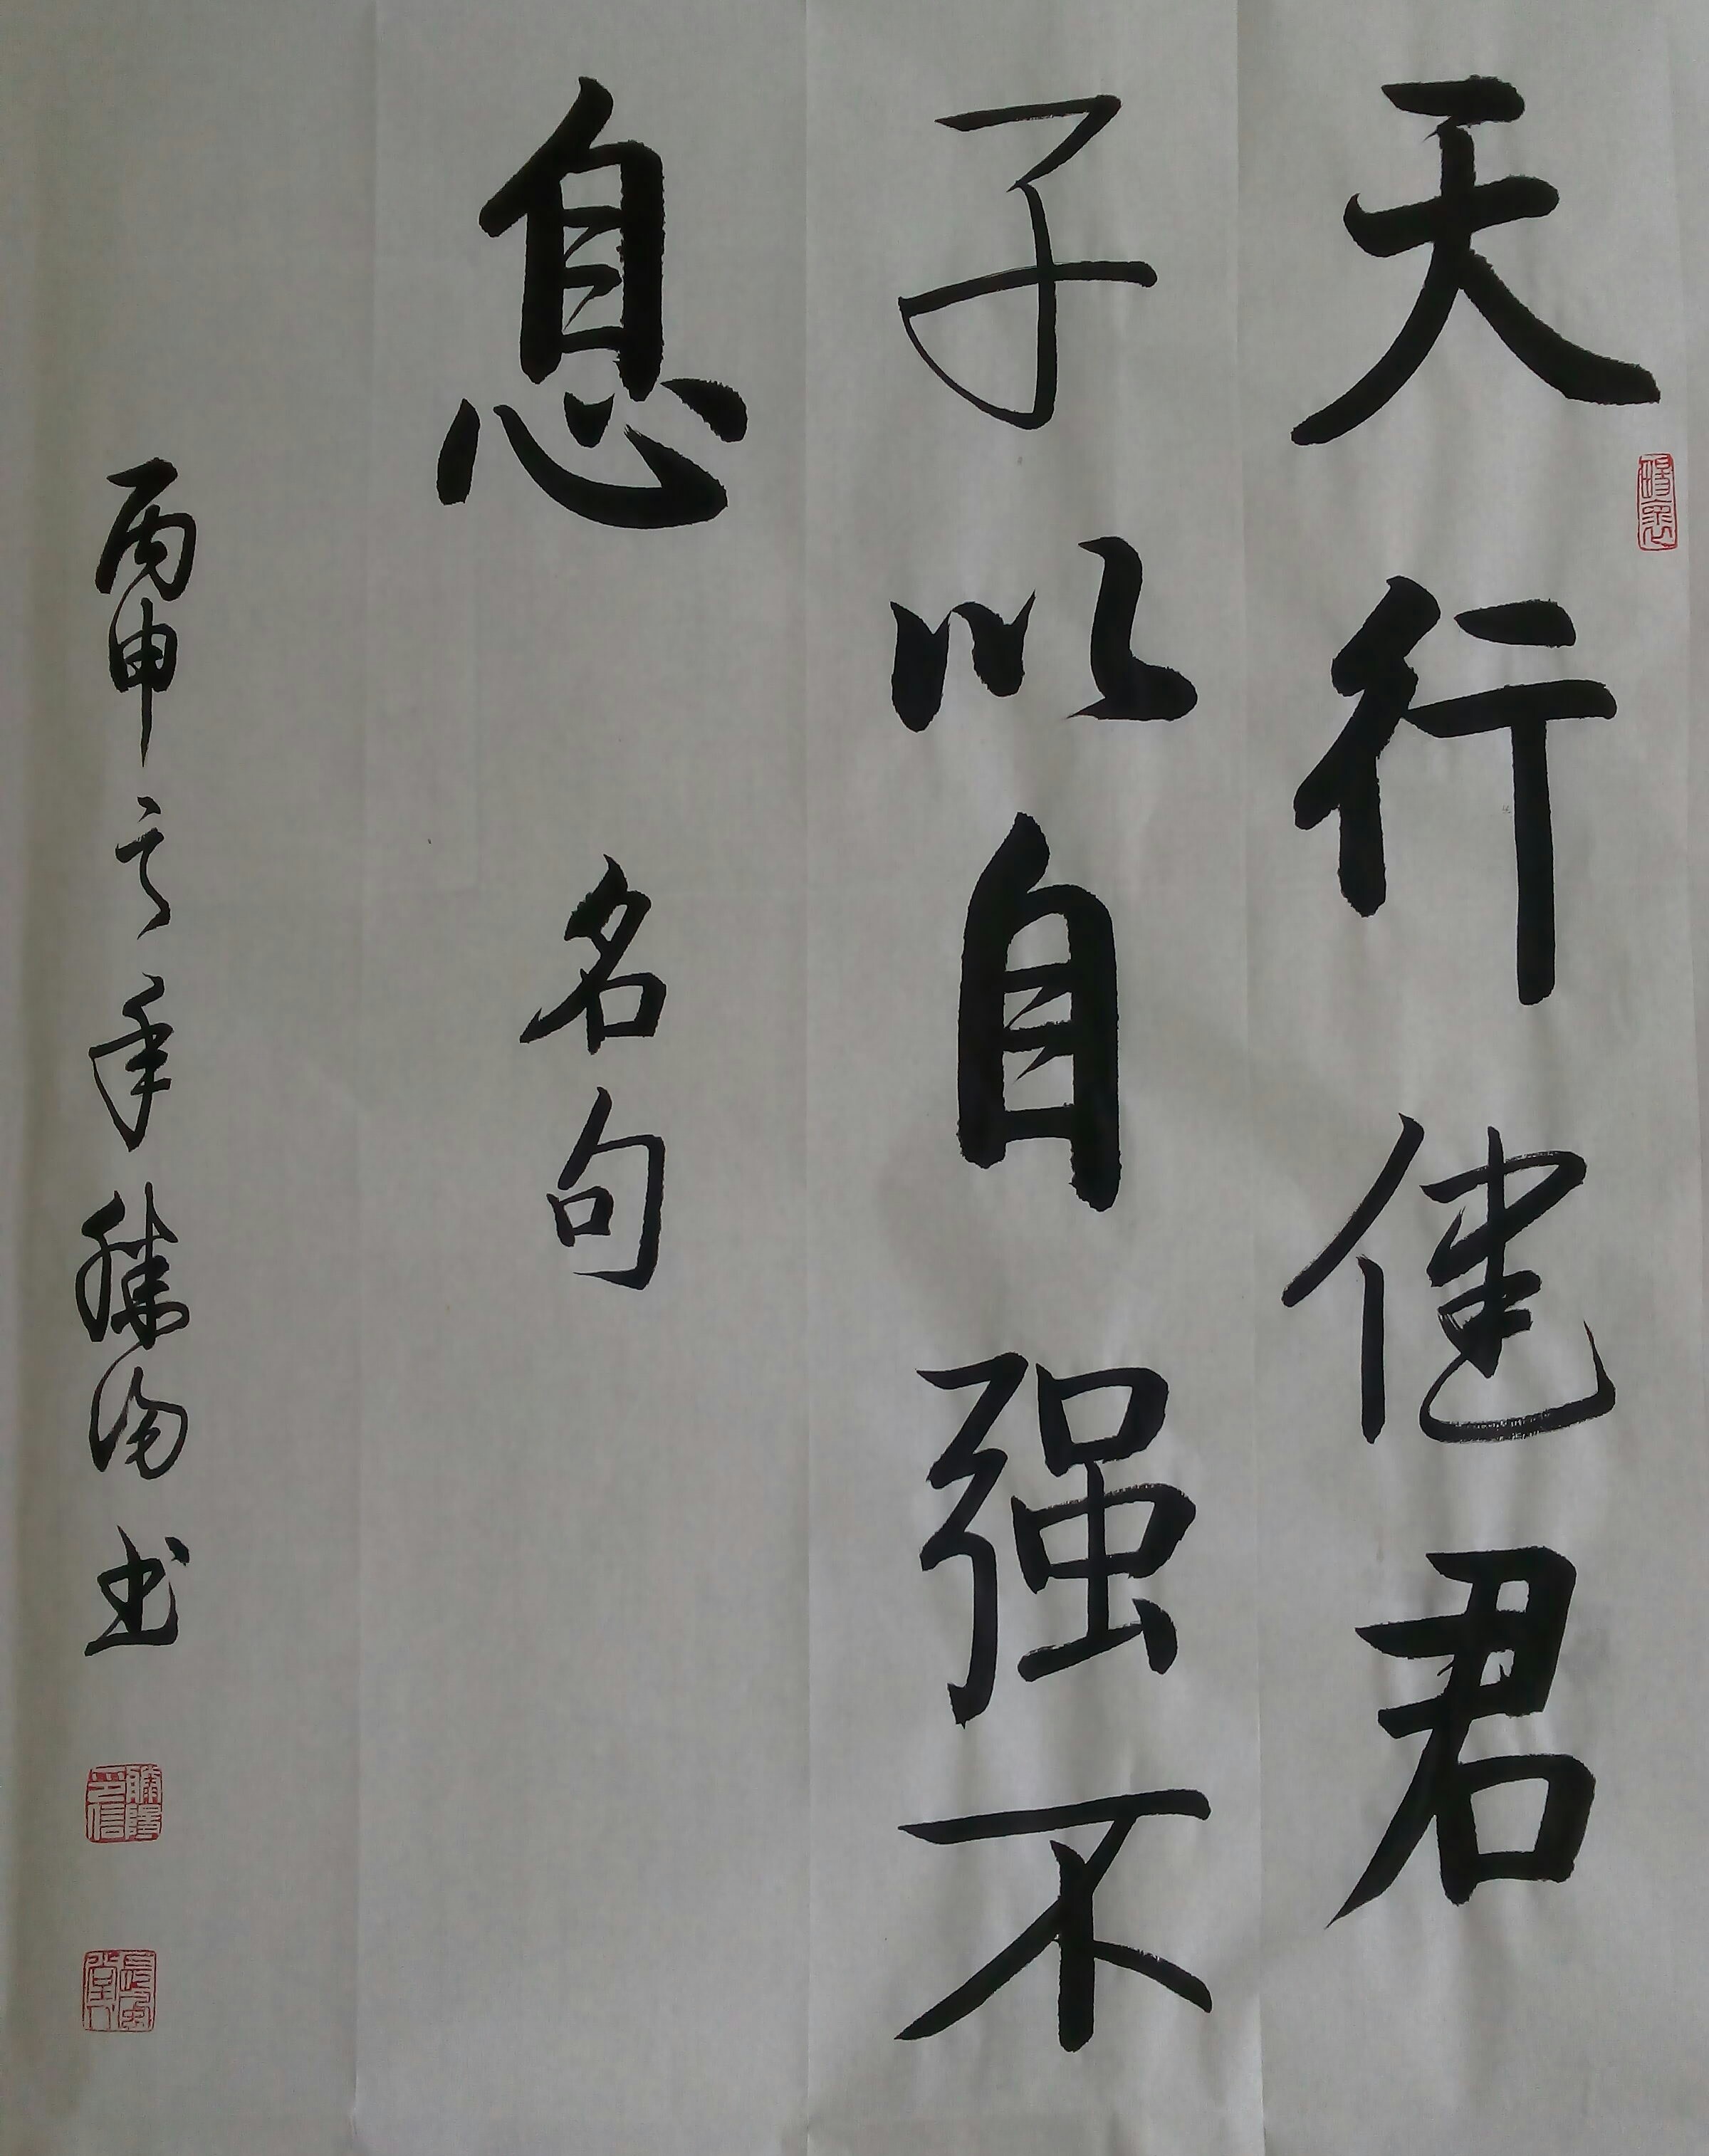 天行健君
子以自强不
息 名句
丙申之年 书